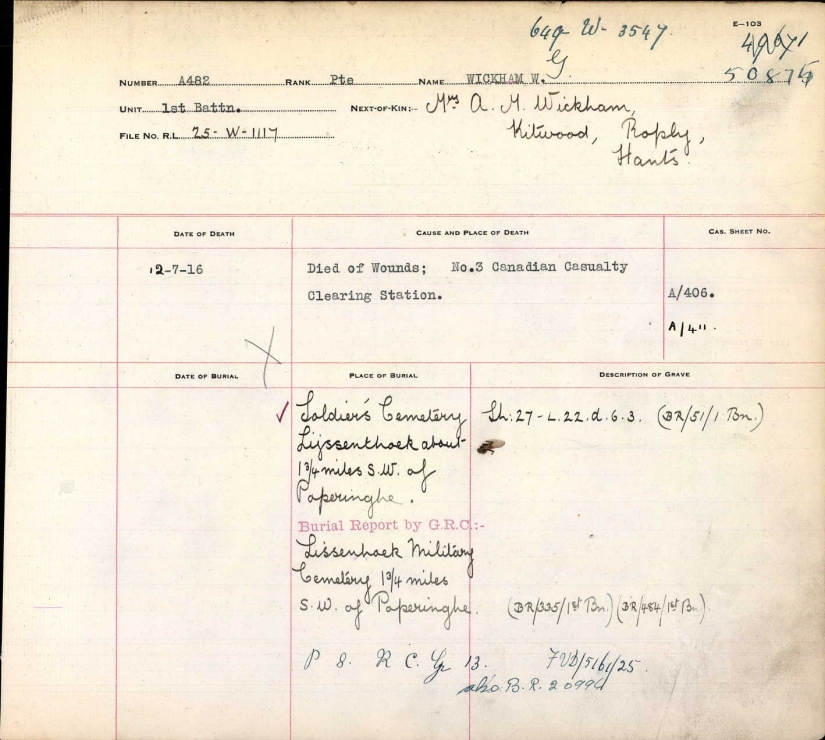 E-103
649-W-3547.
50875
NUMBER A482 RANK Pte NAME WICKHAM W.
G
UNIT 1st Battn. NEXT-OF-KIN:- Mrs A. M. Wickham,
Kitwood, Roply,
Hants.
FILE NO. R.L. 25-W-1117
DATE OF DEATH CAUSE AND PLACE OF DEATH CAS. SHEET NO.
12-7-16 Died of Wounds; No.3 Canadian Casualty
Clearing Station. A/406.
A/411.
DATE OF BURIAL PLACE OF BURIAL DESCRIPTION OF GRAVE
Soldier's Cemetery Sh: 27-L.22.d.6.3. (BR/51/1 Bn.)
Lijssenthoek about
1¾ miles S.W. of
Poperinghe.
Burial Report by G.R.C.:-
Lissenhoek Military
Cemetery 1¾ miles
S.W. of Poperinghe. (BR/335/1st Bn.) (BR/484/1st Bn.)
P 8. R C. Gr 13.
also B.R. 2